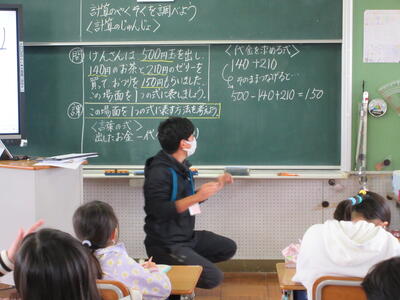 計算のやくそくを調べよう
〈計算のじゅんじょ〉
問
けんさんは500円玉を出し、
140円のお茶と210円のゼリーを
買って、おつりを150円もらいました。
この場面を1つの式に表しましょう。
課
この場面を1つの式に表す方法を考えよう。
〈言葉の式〉
出したお金-代
〈代金を求める式〉
140+210
そのままつなげると…
500-140+210=150